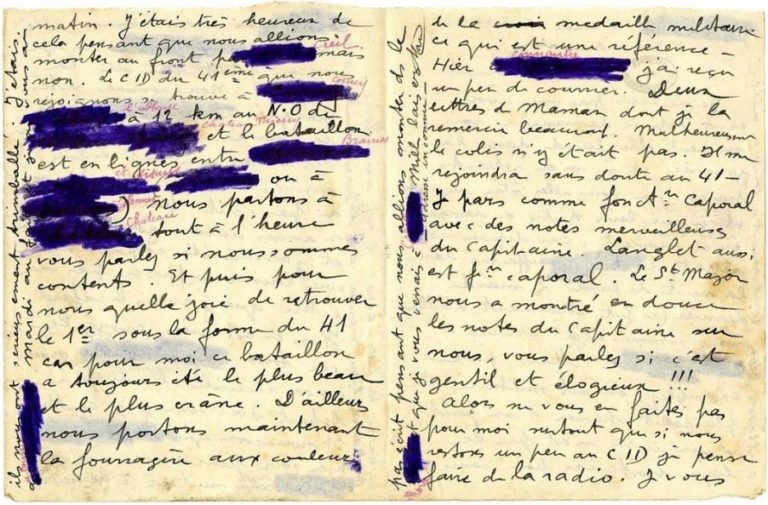 matin. J'étais très heureux de
cela pensant que nous allions
monter au front mais
Creil
non. Le CID du 41ème que nous
rejoignons se trouve à
à 12 km au N.O de
Thierry
et le bataillon
est en lignes entre
Braine
ou à
nous partons à
Chateau
tout à l'heure
vous parlez si nous sommes
contents. Et puis pour
nous quelle joie de retrouver
le 1er sous la forme du 41
car pour moi ce bataillon
a toujours été le plus beau
et le plus crâne. D'ailleurs
nous portons maintenant
la fourragère aux couleurs
il nous ont sérieusement trimballé. J'étais
mardi au
de la medaille militaire
ce qui est une référence -
Hier j'ai reçu
un peu de courrier. Deux
lettres de Maman dont je la
remercie beaucoup. Malheureusement
le colis n'y était pas. Il me
rejoindra sans doute au 41 -
J pars comme fonct. Caporal
avec des notes merveilleuses
du Capitaine. Langlet aussi
est f. caporal. Le St Major
nous a montré en douce
les notes du Capitaine sur
nous, vous parlez si c'est
gentil et élogieux !!!
Alors ne vous en faites pas
pour moi surtout que si nous
restons un peu au CID je pense
faire de la radio. J vous
pas écrit pensant que nous allions monter de le
et que je vous venais à